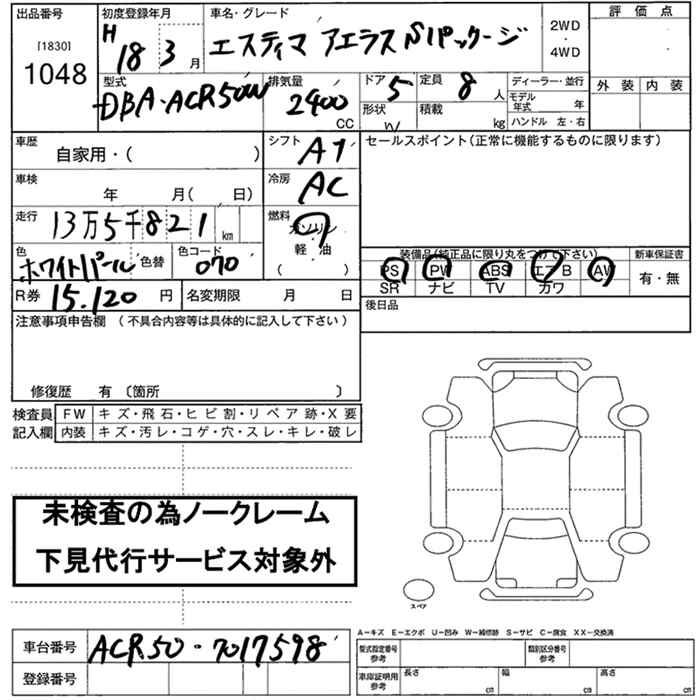 出品番号 初度登録年月 車名・グレード 評価点
[1830] H18 3月 エスティマ アエラス Sパッケージ 2WD・4WD
1048
外装 内装
型式 排気量 ドア 5 定員 8人 ディーラー・並行
DBA・ACR50W 2400CC 形状 W 積載 kg モデル年式 年
ハンドル 左・右
車歴 自家用・( ) シフト AT セールスポイント(正常に機能するものに限ります)
車検 年 月( 日) 冷房 AC
走行 13万5千821km 燃料 ガソリン 軽・油
色 ホワイトパール 色替 色コード 070 ( )
装備品(純正品に限り丸をつけて下さい) 新車保証書
PS PW ABS エアB AW 有・無
SR ナビ TV カワ
R券 15.120円 名変期限 月 日 後日品
注意事項申告欄 (不具合内容等は具体的に記入して下さい)
修復歴 有〔箇所 〕
検査員 FW キズ・飛石・ヒビ割・リペア跡・X要
記入欄 内装 キズ・汚レ・コゲ・穴・スレ・キレ・破レ
未検査の為ノークレーム
下見代行サービス対象外
スペア
A－キズ E－エクボ U－凹み W－補修跡 S－サビ C－腐食 XX－交換済
車台番号 ACR50-7017598
型式指定番号 参考 類別区分番号 参考
登録番号
車庫証明用 参考 長さ cm 幅 cm 高さ cm